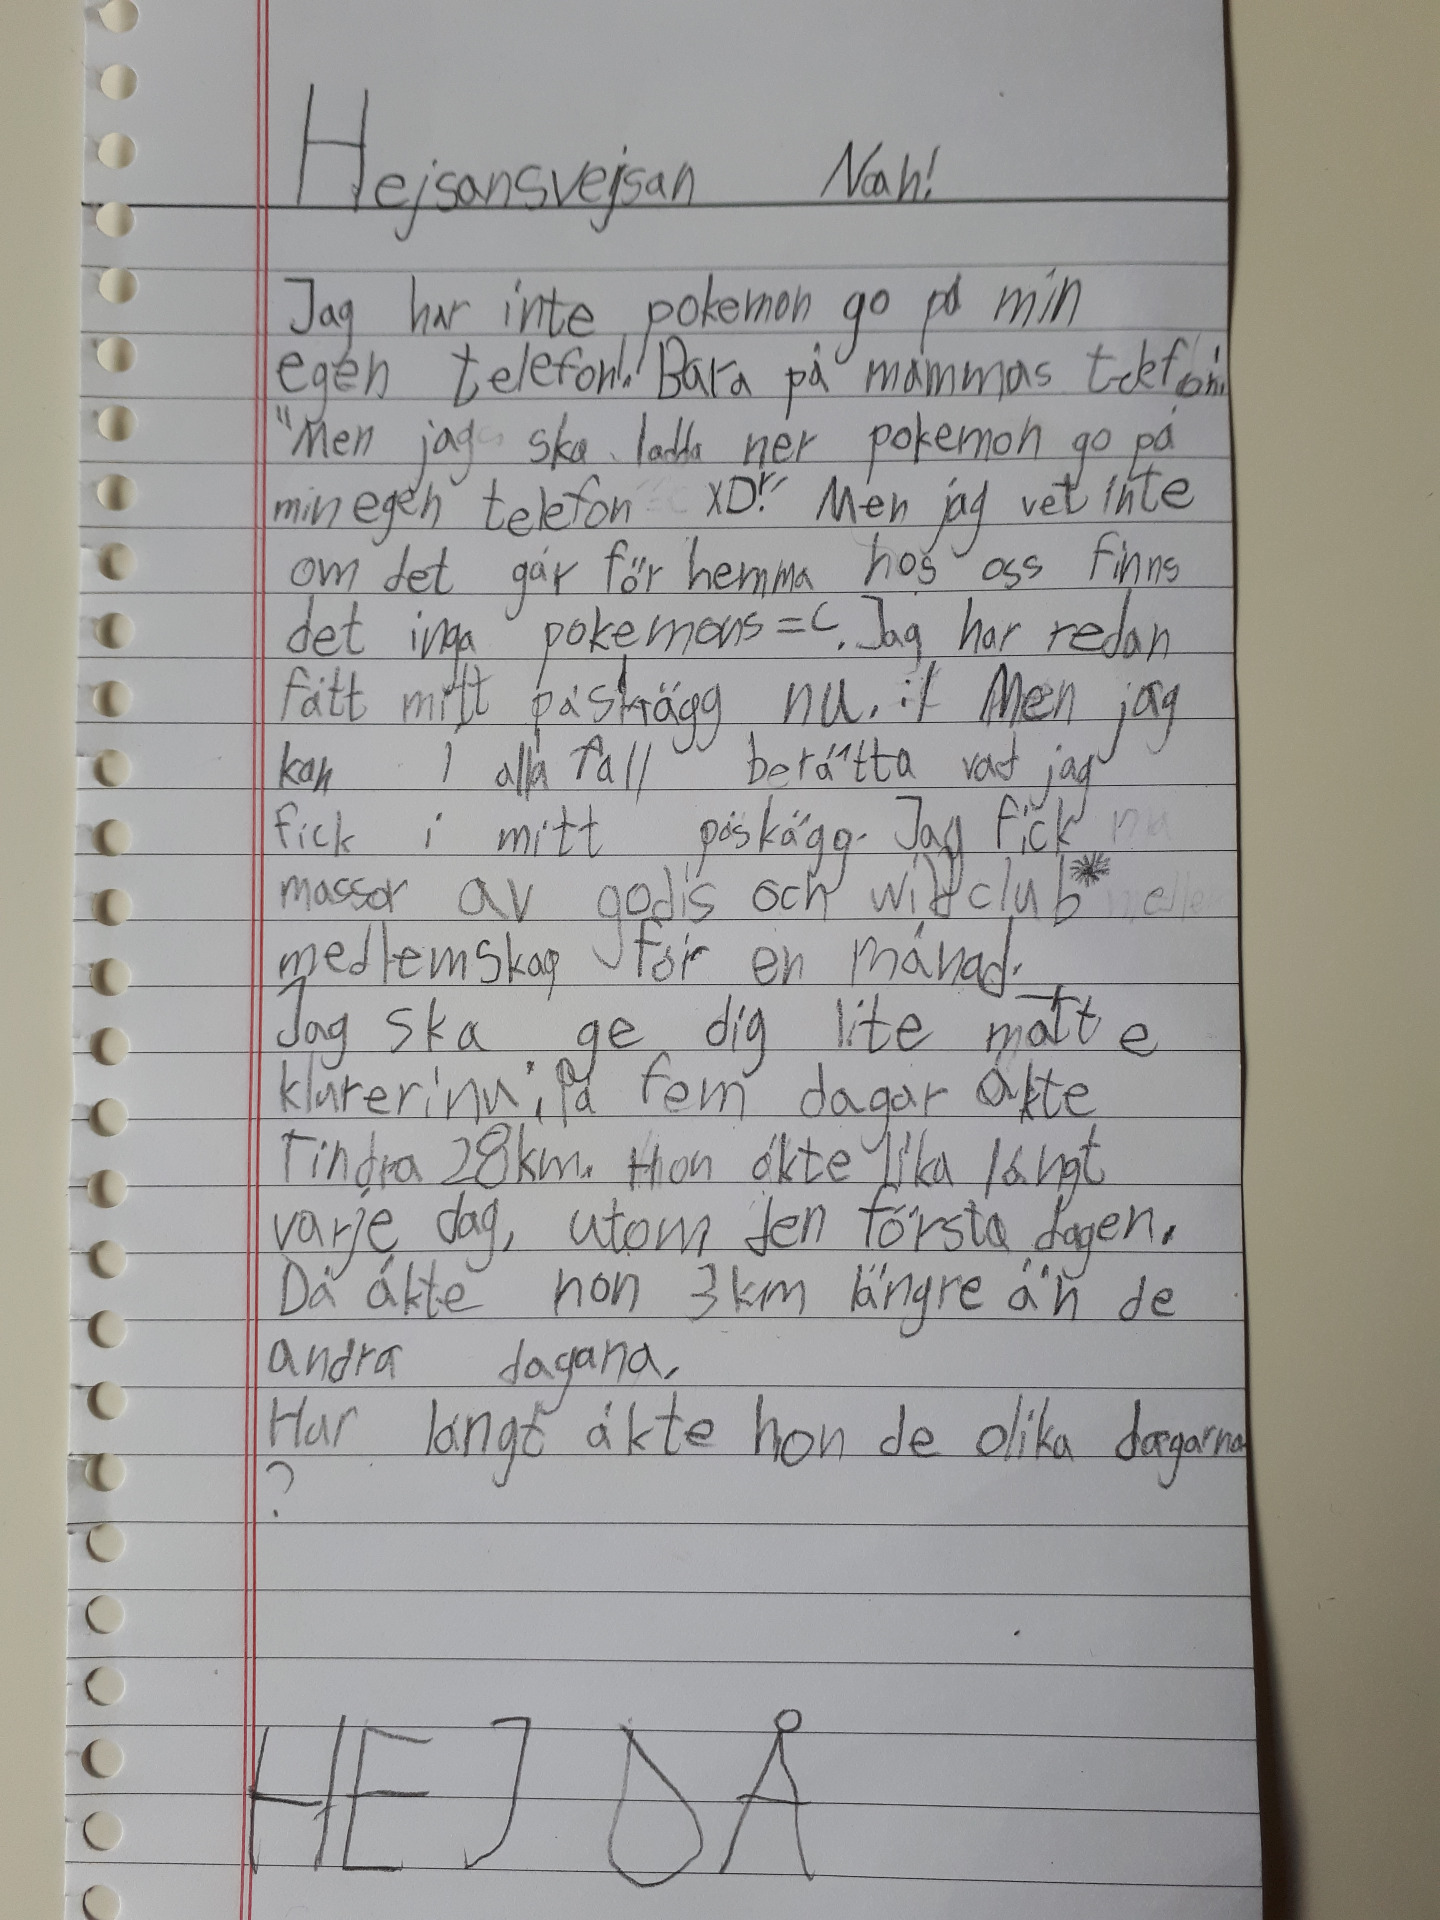 Hejsansvejsan Noah!
Jag har inte pokemon go på min
egen telefon!. Bara på mammas telefon.
"Men jag ska ladda ner pokemon go på
min egen telefon XD!" Men jag vet inte
om det går för hemma hos oss finns
det inga pokemons =C. Jag har redan
fått mitt påskägg nu. :( Men jag
kan i alla fall berätta vad jag
fick i mitt påskägg. Jag fick
massor av godis och wildclub*
medlemskap för en månad.
Jag ska ge dig lite matte
klurerinu: På fem dagar åkte
Tindra 28km. Hon åkte lika långt
varje dag, utom den första dagen.
Då åkte hon 3km längre än de
andra dagana.
Hur långt åkte hon de olika dagarna
?
HEJ DÅ